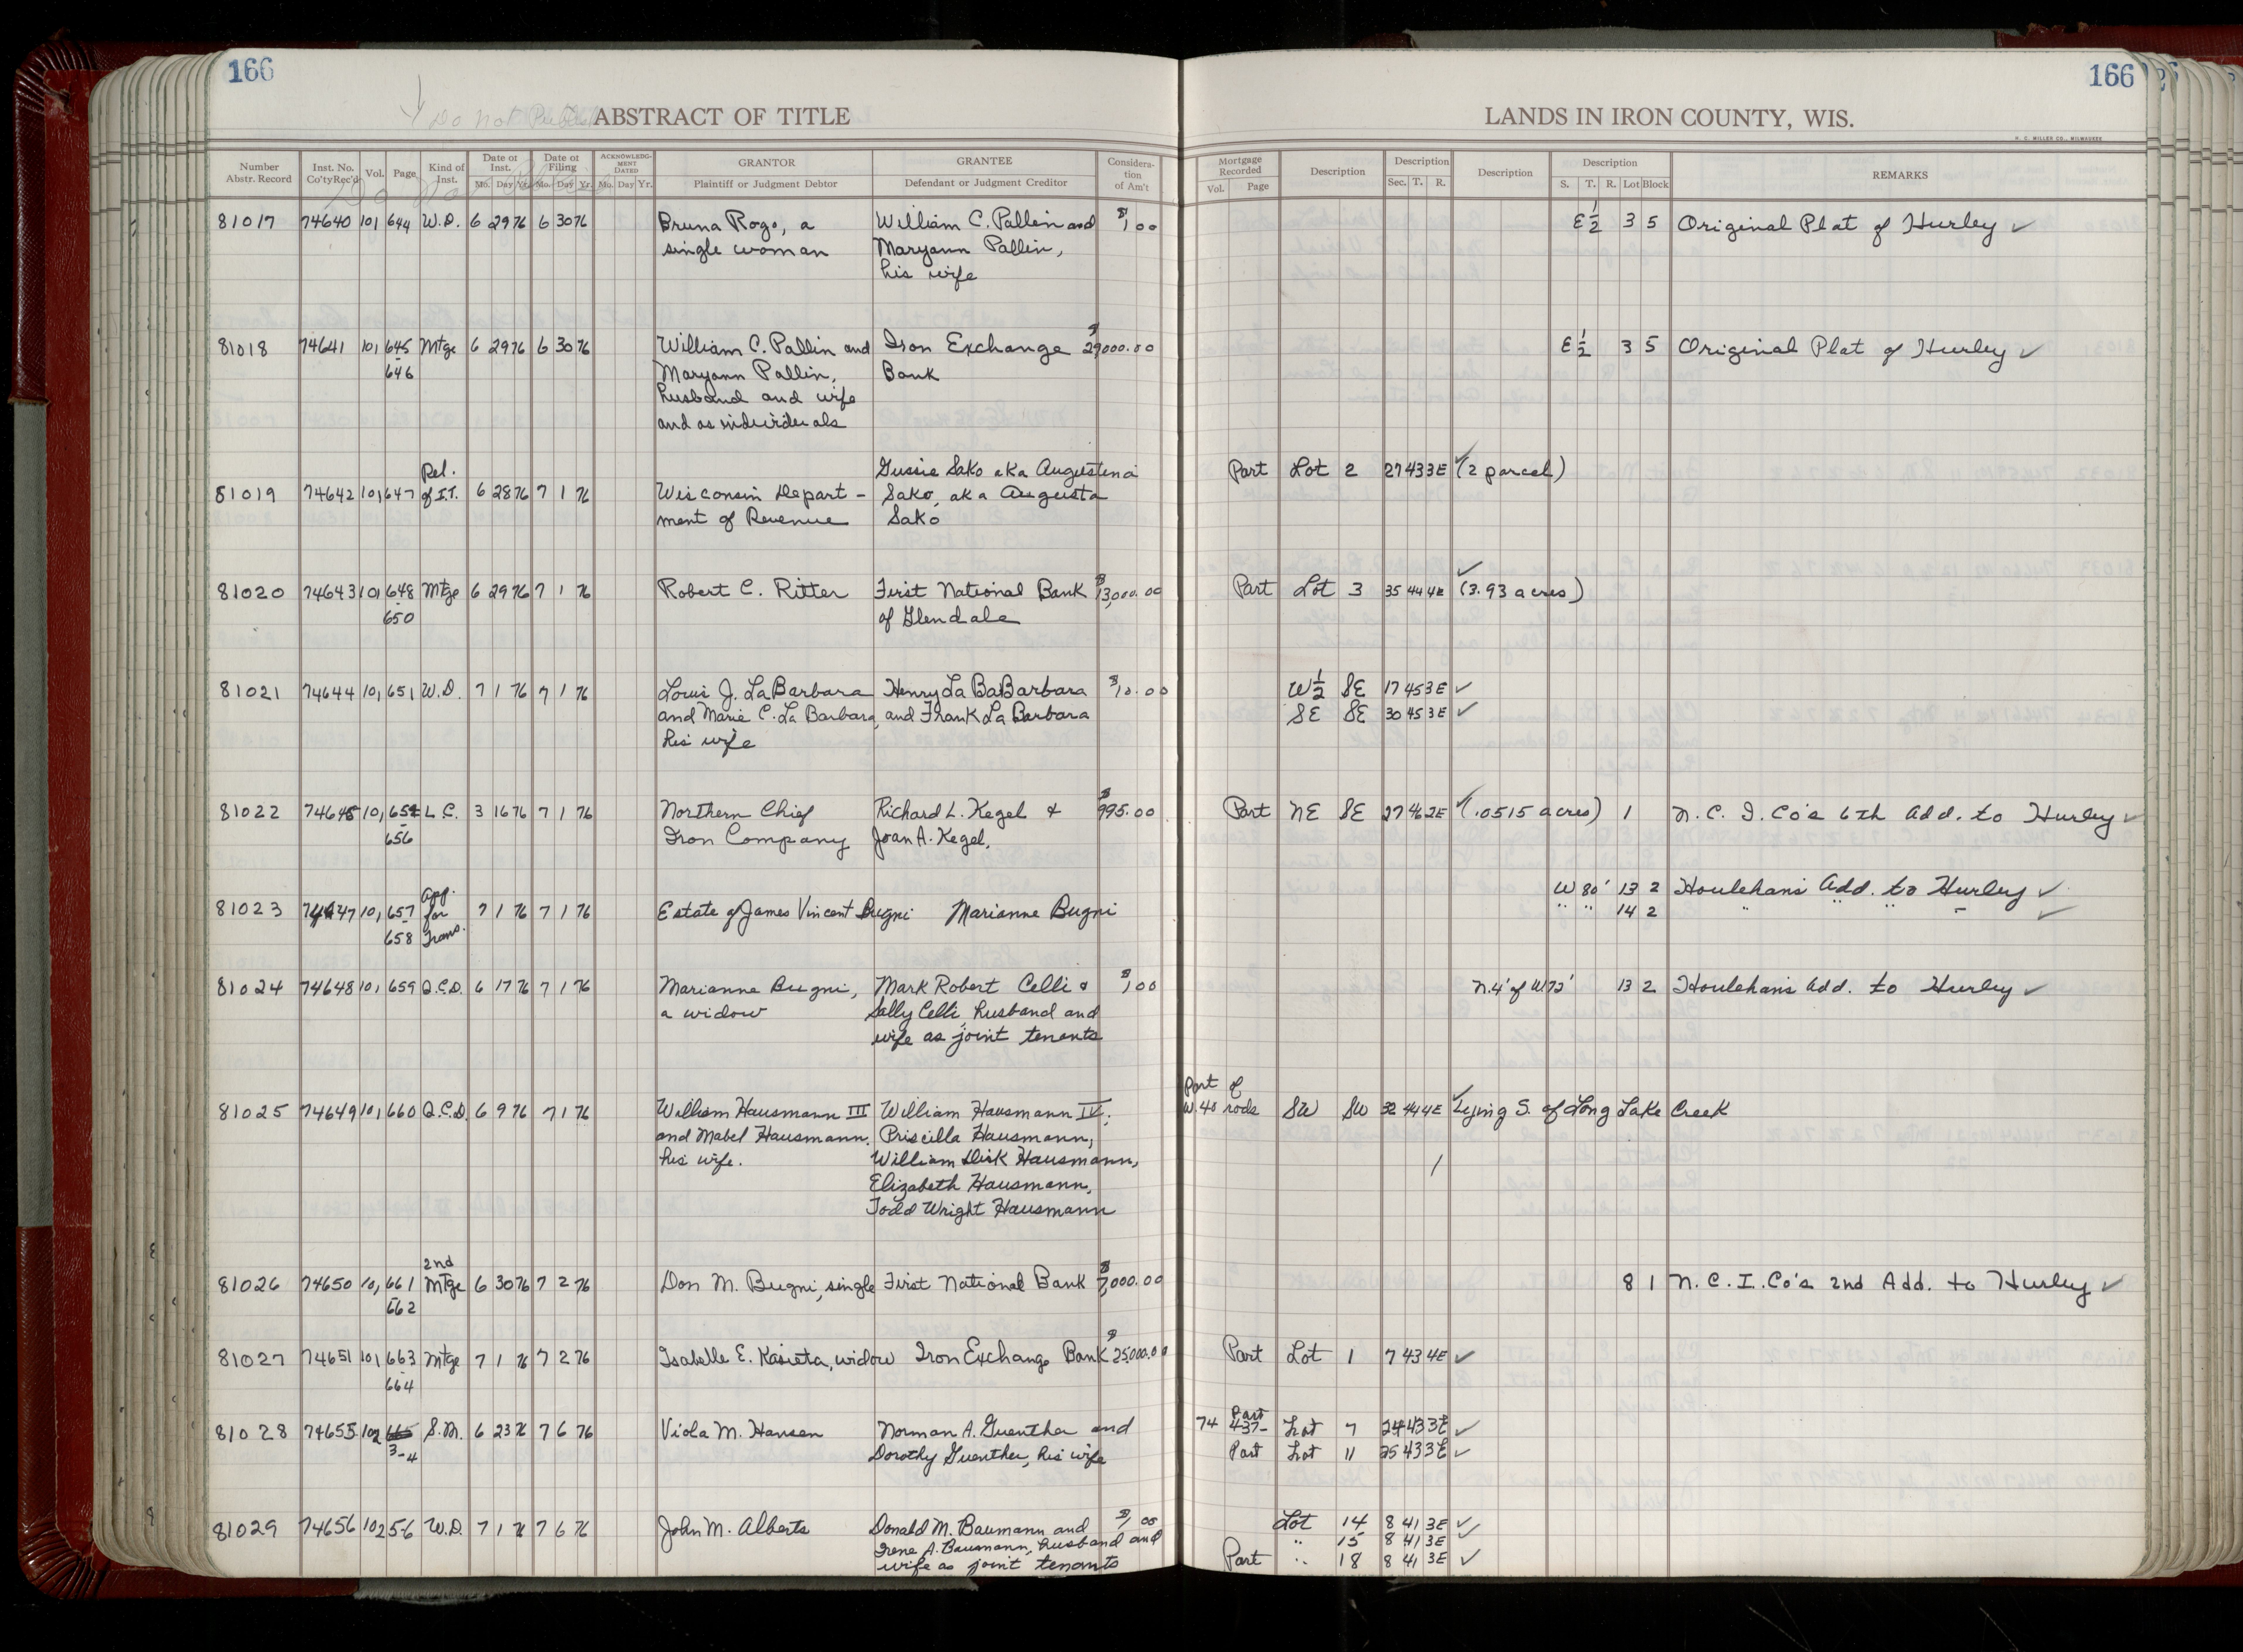 166
166
Do not
ABSTRACT OF TITLE
LANDS IN IRON COUNTY, WIS.
H. C. MILLER CO., MILWAUKEE
Number Abstr. Record | Inst. No. Co'ty Rec'd | Vol. | Page | Kind of Inst. | Date of Inst. Mo. Day Yr. | Date of Filing Mo. Day Yr. | ACKNOWLEDG-MENT DATED Mo. Day Yr. | GRANTOR Plaintiff or Judgment Debtor | GRANTEE Defendant or Judgment Creditor | Considera-tion of Am't | Mortgage Recorded Vol. Page | Description | Description Sec. T. R. | Description | Description S. T. R. Lot Block | REMARKS
81017 74640 101 644 W.D. 6 29 76 6 30 76 Bruna Rogo, a William C. Pallin and $1.00 E 1/2 3 5 Original Plat of Hurley ✓
single woman Maryann Pallin,
his wife
81018 74641 101 645 Mtge 6 29 76 6 30 76 William C. Pallin and Iron Exchange $29000.00 E 1/2 3 5 Original Plat of Hurley ✓
-646 Maryann Pallin, Bank
husband and wife
and as individuals
Rel. Gussie Sako aka Augustina Part Lot 2 27 43 3E ✓ (2 parcel)
81019 74642 101 647 of I.T. 6 28 76 7 1 76 Wisconsin Depart- Sako, aka Augusta
ment of Revenue Sako
81020 74643 101 648 Mtge 6 29 76 7 1 76 Robert C. Ritter First National Bank $13,000.00 Part Lot 3 35 44 4E ✓ (3.93 acres)
-650 of Glendale
81021 74644 101 651 W.D. 7 1 76 7 1 76 Louis J. LaBarbara Henry La BaBarbara $10.00 W 1/2 SE 17 45 3E ✓
and Marie C. La Barbara, and Frank La Barbara SE SE 30 45 3E ✓
his wife
81022 74645 101 654 L.C. 3 16 76 7 1 76 Northern Chief Richard L. Kegel & $995.00 Part NE SE 27 46 2E ✓ (.0515 acres) 1 N. C. I. Co's 6th Add. to Hurley ✓
-656 Iron Company Joan A. Kegel.
App. W 80' 13 2 Houlehan's Add. to Hurley ✓
81023 74647 101 657 for 7 1 76 7 1 76 Estate of James Vincent Bugni Marianne Bugni " " 14 2 " " " - ✓
-658 Trans.
81024 74648 101 659 Q.C.D. 6 17 76 7 1 76 Marianne Bugni, Mark Robert Celli & $1.00 N.4' of W 72' 13 2 Houlehan's Add. to Hurley ✓
a widow Sally Celli, husband and
wife as joint tenants
Part of
81025 74649 101 660 Q.C.D. 6 9 76 7 1 76 William Hausmann III William Hausmann IV, W. 40 rods SW SW 32 44 4E ✓ Lying S. of Long Lake Creek
and Mabel Hausmann, Priscilla Hausmann,
his wife. William Dirk Hausmann,
Elizabeth Hausmann,
Todd Wright Hausmann
2nd
81026 74650 101 661 Mtge 6 30 76 7 2 76 Don M. Bugni, single First National Bank $7,000.00 8 1 N. C. I. Co's 2nd Add. to Hurley ✓
-662
81027 74651 101 663 Mtge 7 1 76 7 2 76 Isabelle E. Kasieta, widow Iron Exchange Bank $25,000.00 Part Lot 1 7 43 4E ✓
-664
Part
81028 74655 102 665 S.M. 6 23 76 7 6 76 Viola M. Hansen Norman A. Guenther and 74 437- Lot 7 24 43 3E ✓
3-4 Dorothy Guenther, his wife Part Lot 11 25 43 3E ✓
81029 74656 102 5-6 W.D. 7 1 76 7 6 76 John M. Alberts Donald M. Baumann and $1.00 Lot 14 8 41 3E ✓
Irene A. Baumann, husband and " 15 8 41 3E ✓
wife as joint tenants Part " 18 8 41 3E ✓